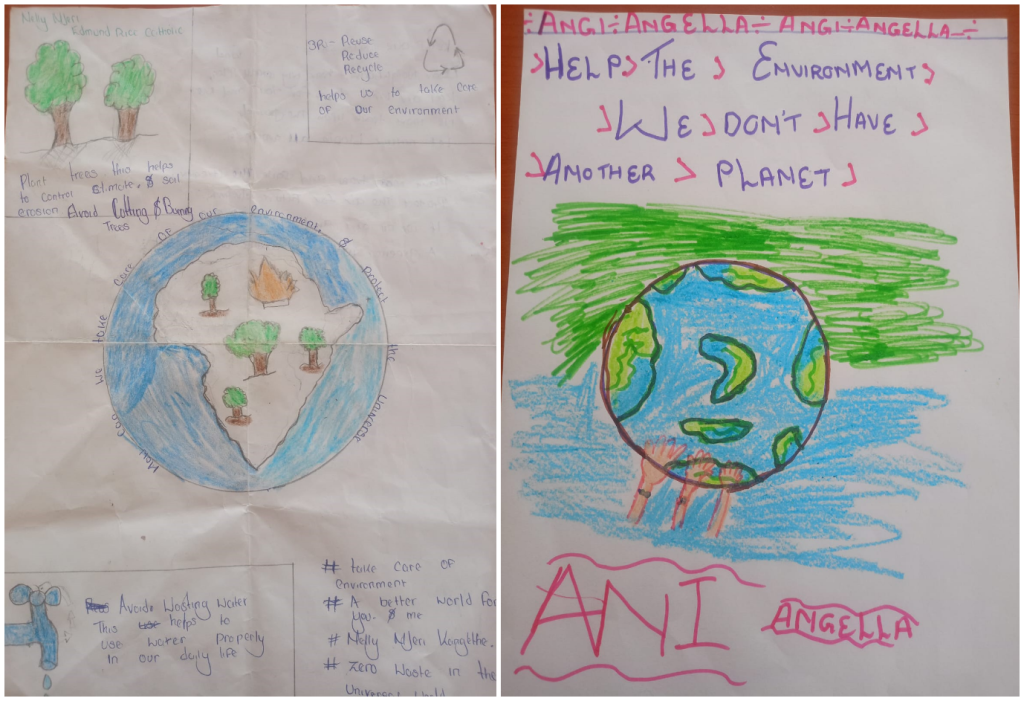 Nelly Njeri
Edmund Rice Catholic
3R - Reuse
Reduce
Recycle
helps us to take care
of our environment
Plant trees this helps
to control climate, & soil
erosion Avoid Cutting & Burning
Trees
How can we take care of our environment & protect the universe
Avoid wasting water
This helps to
use water properly
in our daily life
# take care of
environment
# A better world for
you. & me
# Nelly Njeri
# Zero waste in the
Universal World
÷ANGI÷ANGELLA÷ ANGI÷ANGELLA÷
HELP THE ENVIRONMENT
WE DON'T HAVE
ANOTHER PLANET
ANI
ANGELLA